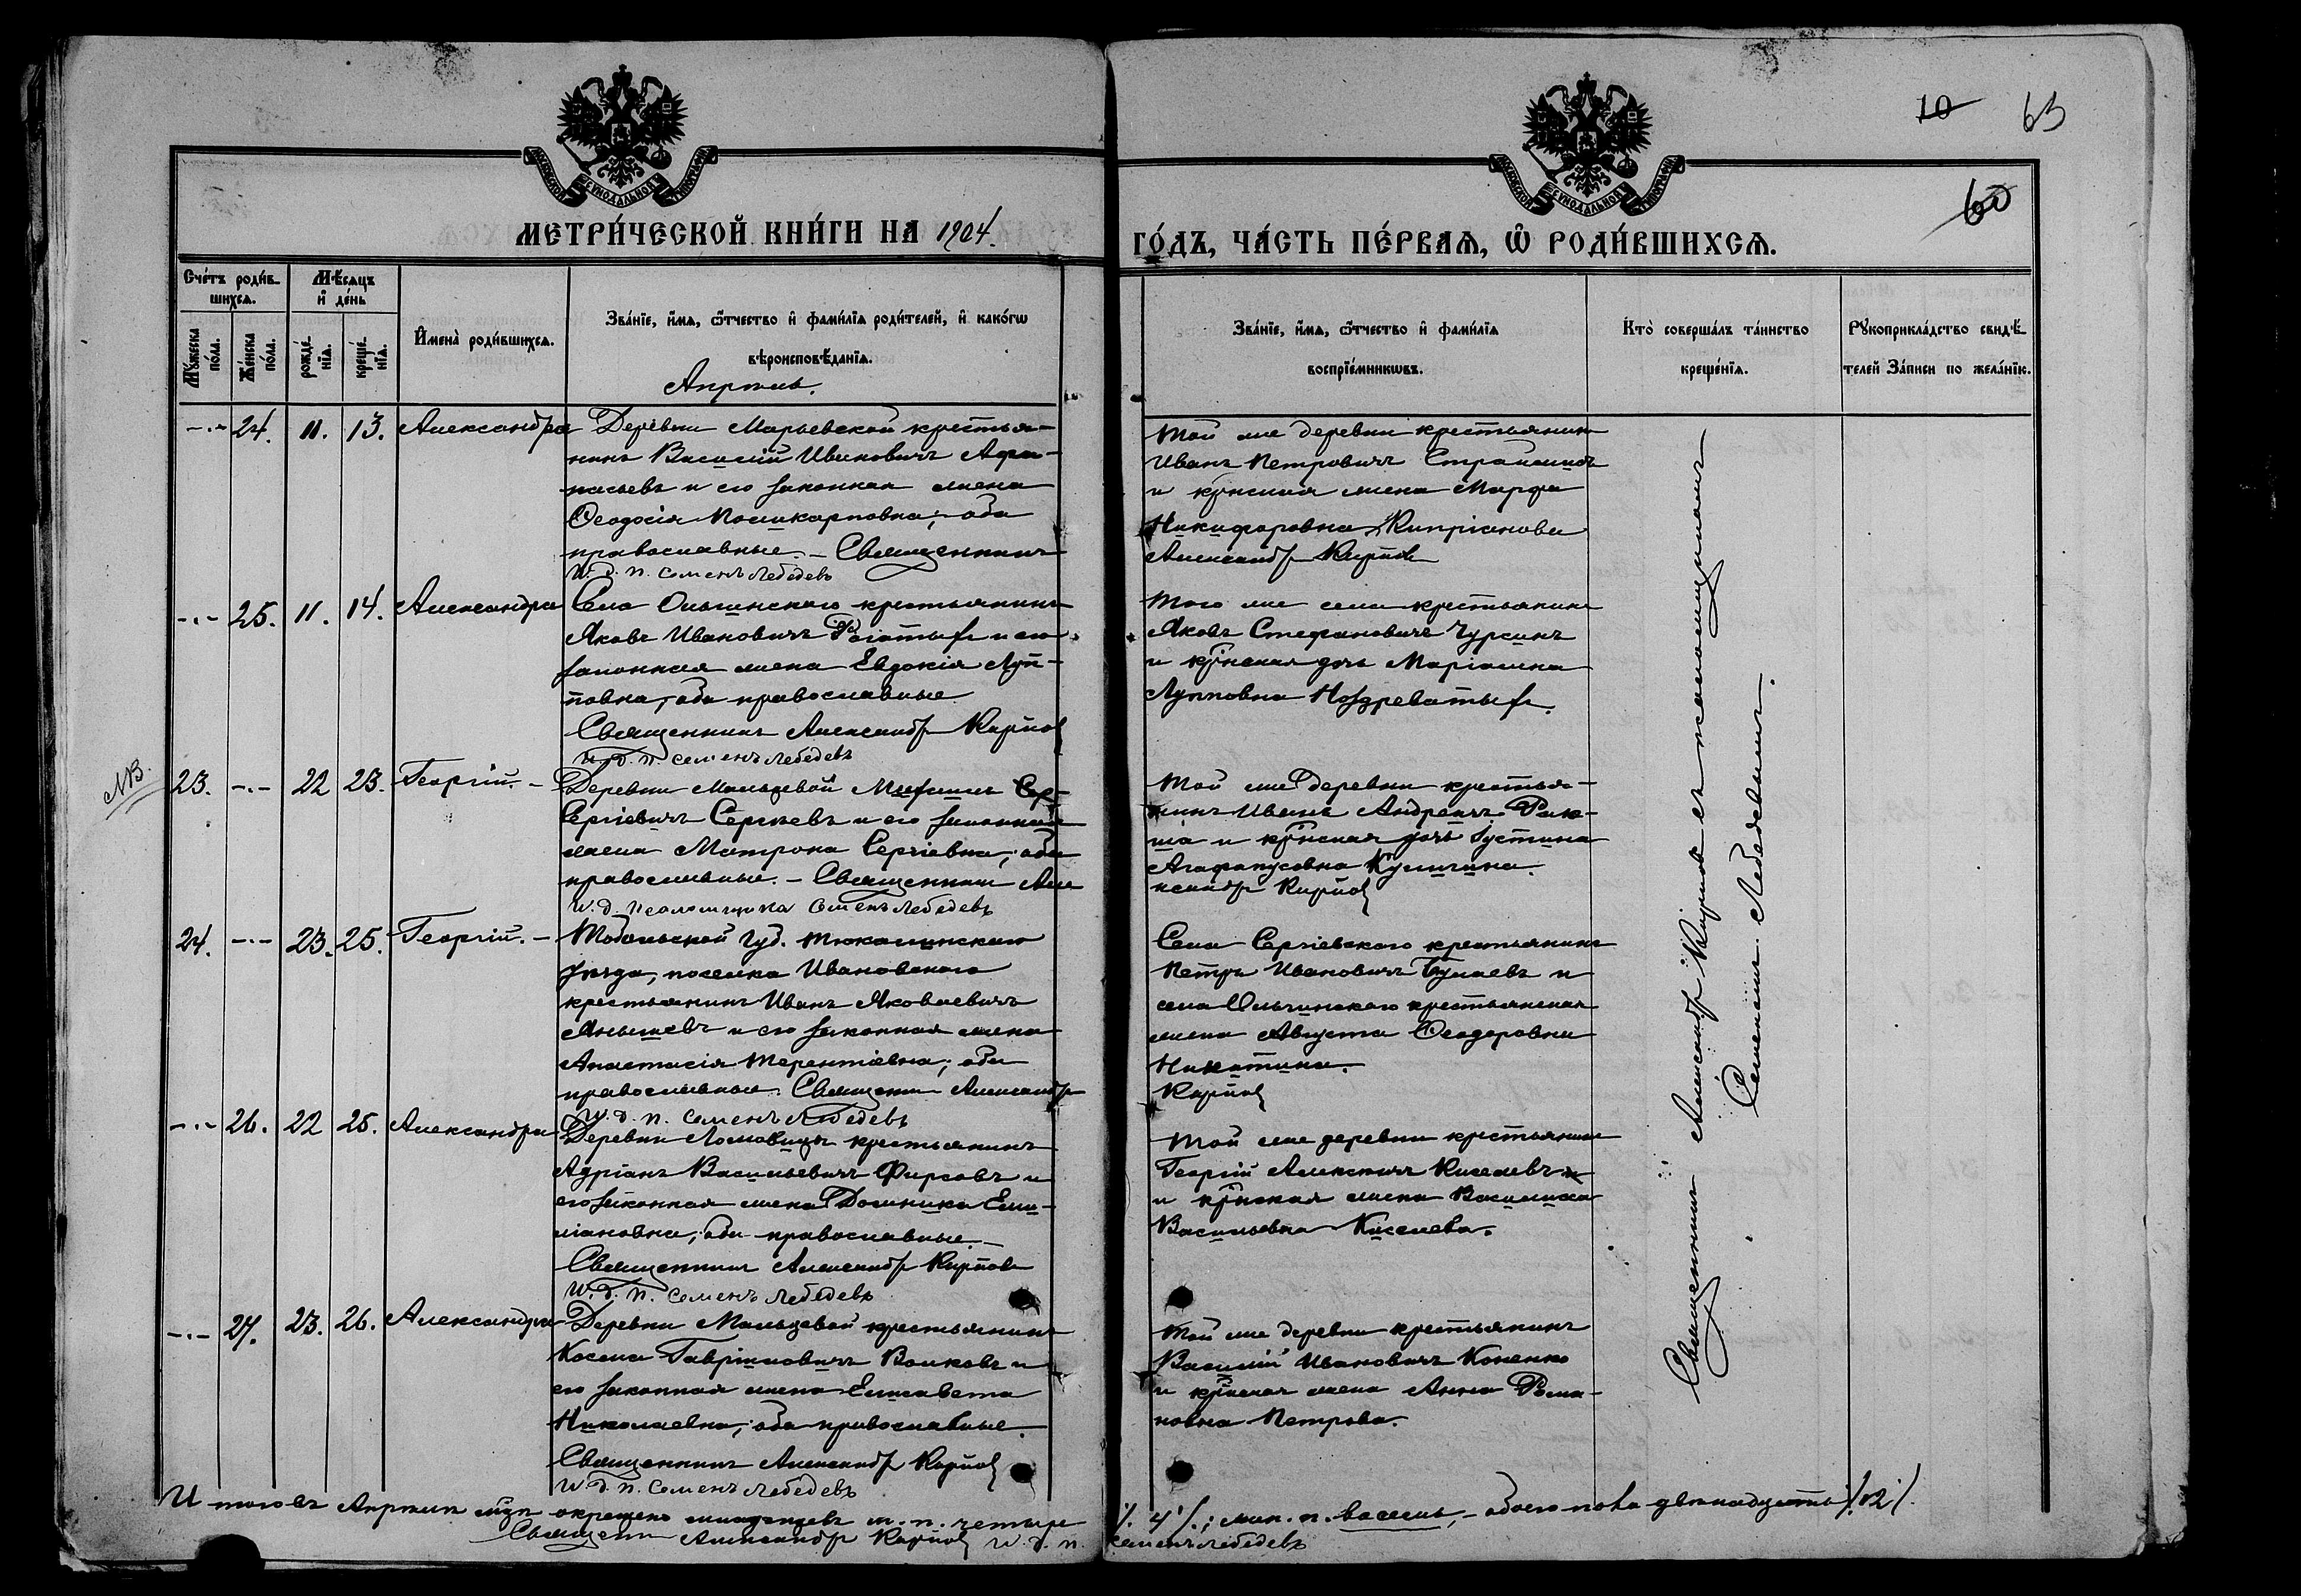 10 63
60
МЕТРИ́ЧЕСКОЙ КНИ́ГИ НА 1904.
ГО́ДЪ, ЧА́СТЬ ПЕ́РВАѦ, Ѡ РОДИ́ВШИХСѦ.
Сче́тъ роди́в-
шихсѧ.
Мѣ́сѧцъ
и де́нь
Мꙋ́жеска
по́ла.
Же́нска
по́ла.
рожде́-
нїѧ.
креще́-
нїѧ.
Имена̀ роди́вшихсѧ.
Зва́нїе, и́мѧ, ѻ́тчество и фами́лїѧ роди́телей, и како́гѡ
вѣроисповѣ́данїѧ.
Зва́нїе, и́мѧ, ѻ́тчество и фами́лїѧ
воспрїе́мникѡвъ.
Кто̀ соверша́лъ та́инство
креще́нїѧ.
Рꙋкоприкла́дство свидѣ́-
телей За́писи по жела́нїю.
Апрѣль.
-·- 24. 11. 13. Александра
Деревни Марьевской крестья-
нинъ Василій Ивановичъ Афа-
насьевъ и его законная жена
Ѳеодосія Поликарповна; оба
православные. - Священникъ
И. д. п. Семенъ Лебедевъ
Той же деревни крестьянинъ
Иванъ Петровичъ
и кр҃нская жена Марфа
Никифоровна Кипріанова
Александръ Карповъ
-·- 25. 11. 14. Александра
Села Ольгинскаго крестьянинъ
Яковъ Ивановичъ и его
законная жена Евдокія Луп-
повна, оба православные
Священникъ Александръ Карповъ
И. д. п. Семенъ Лебедевъ
Того же села крестьянинъ
Яковъ Стефановичъ Чурсинъ
и кр҃нская дочь Маріамна
Лупповна Ноздреватыхъ.
NB.
23. -·- 22 23. Георгій. -
Деревни Мальцевой Сер-
Сергіевичъ Сергѣевъ и его законная
жена Матрона Сергіевна; оба
православные. - Священникъ Але
И. д. псаломщика Семенъ Лебедевъ
Той же деревни крестья-
нинъ Иванъ Андреевъ
и кр҃нская дочь Іустина
Агафапусовна
ксандръ Карповъ
24. -·- 23. 25. Георгій. -
Тобольской губ. Тюкалинскаго
уѣзда, поселка Ивановскаго
крестьянинъ Иванъ Яковлевичъ
и его законная жена
Анастасія Терентіевна; оба
православные. Священникъ Александръ
И. д. п. Семенъ Лебедевъ
Села Сергіевскаго крестьянинъ
Петръ Ивановичъ и
села Ольгинскаго крестьянская
жена Августа Ѳеодоровна
Никитина.
Карповъ
-·- 26. 22 25. Александра
Деревни Ломовицы крестьянинъ
Адріанъ Васильевичъ Фирсовъ и
его законная жена Домника Еми-
ліановна; оба православные. -
Священникъ Александръ Карповъ
И. д. п. Семенъ Лебедевъ
Той же деревни крестьянинъ
Георгій Алексѣевичъ Киселевъ
и кр҃нская жена Василиса
Васильевна Киселева.
-·- 27. 23. 26. Александра
Деревни Мальцевой крестьянинъ
Косма Гавріиловичъ Волковъ и
его законная жена Елисавета
Николаевна; оба православные.
Священникъ Александръ Карповъ
И. д. п. Семенъ Лебедевъ
Той же деревни крестьянинъ
Василій Ивановичъ Коненко
и кр҃нская жена Анна Рома-
новна Петрова.
Священникъ Александръ Карповъ съ псаломщикомъ
Семеномъ Лебедевымъ.
Итого въ Апрѣлѣ мѣ҃цѣ окрещено младенцевъ м. п. четыре /. 4 /.; жен. п. восемь, - обоего пола двѣнадцать /. 12 /.
Священникъ Александръ Карповъ И. д. п. Семенъ Лебедевъ